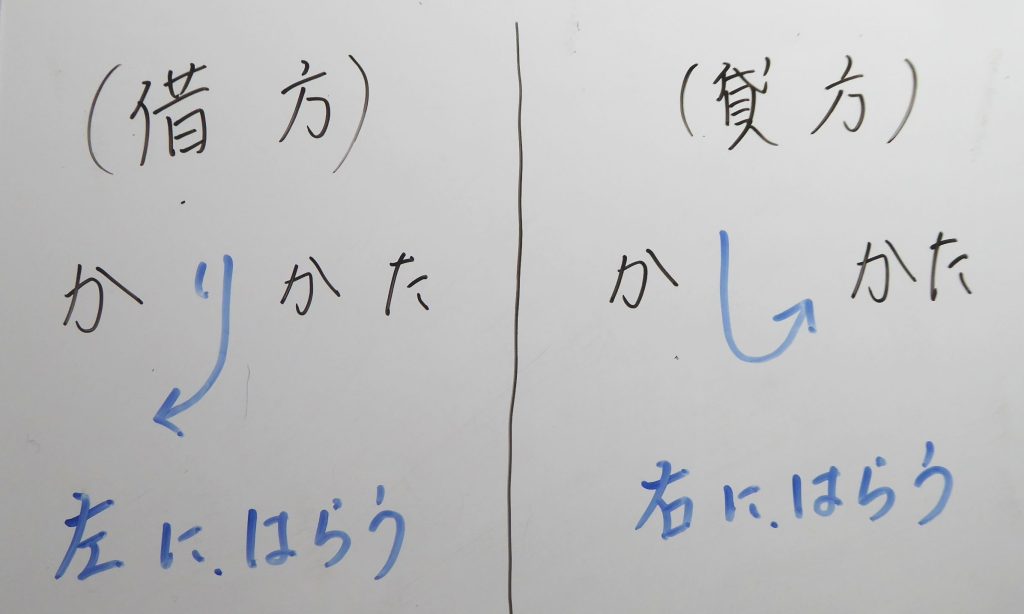 (借方)
かりかた
左にはらう
(貸方)
かしかた
右にはらう